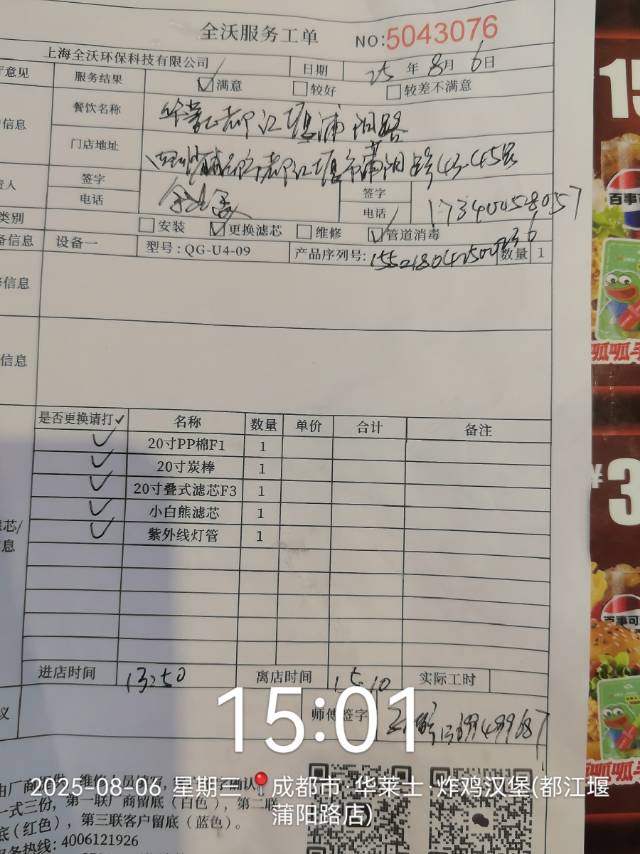 全沃服务工单 NO:5043076
上海全沃环保科技有限公司 日期 25年8月6日
意见 服务结果 ☑满意 □较好 □较差不满意
信息 餐饮名称 华莱士都江堰蒲阳路
门店地址 都江堰市蒲阳路43-45号
签字 签字
电话 电话 17340058057
类别 □安装 ☑更换滤芯 □维修 ☑管道消毒
备信息 设备一 型号:QG-U4-09 产品序列号: 数量 1
信息
信息
是否更换请打✓ 名称 数量 单价 合计 备注
✓ 20寸PP棉F1 1
✓ 20寸炭棒 1
✓ 20寸叠式滤芯F3 1
✓ 小白熊滤芯 1
✓ 紫外线灯管 1
滤芯/
息
进店时间 13:50 离店时间 15:10 实际工时
议 师傅签字
15:01
2025-08-06 星期三 成都市·华莱士·炸鸡汉堡(都江堰
蒲阳路店)
一式三份,第一联厂商留底(白色),第二联
底(红色),第三联客户留底(蓝色)。
服务热线:4006121926
15
百事可
呱呱
¥3
百事可